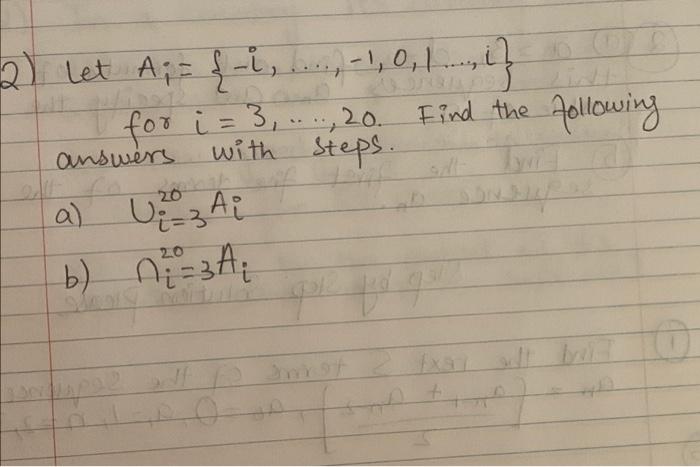 2) Let Aᵢ = {-i, ...., -1, 0, 1 ...., i}
for i = 3, ...., 20. Find the following
answers with steps.
a) ∪²⁰ᵢ₌₃ Aᵢ
b) ∩²⁰ᵢ₌₃ Aᵢ